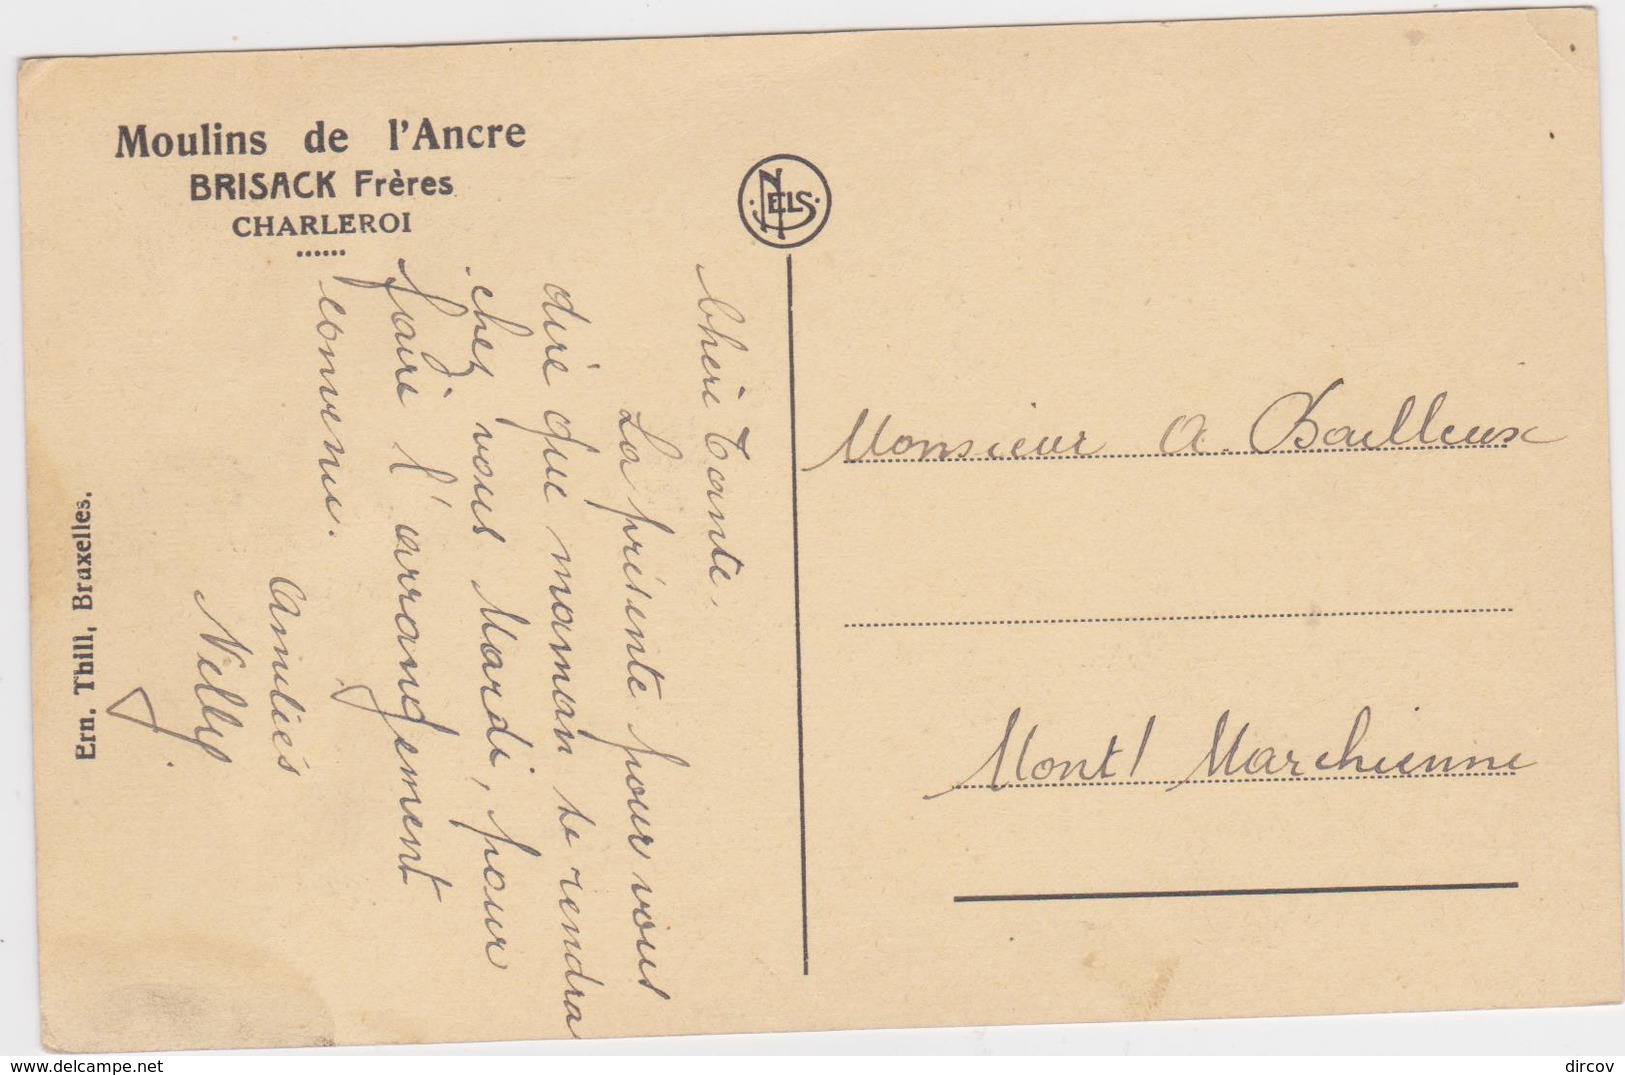 Moulins de l'Ancre
BRISACK Frères
CHARLEROI
NELS
Chère Tante,
La présente pour vous
dire que maman se rendra
chez vous Mardi, pour
faire l'arrangement
convenu.
Amitiés
Nelly.
Ern. Thill, Bruxelles.
Monsieur A. Bailleux
Mont / Marchienne
delcampe.net
dircov